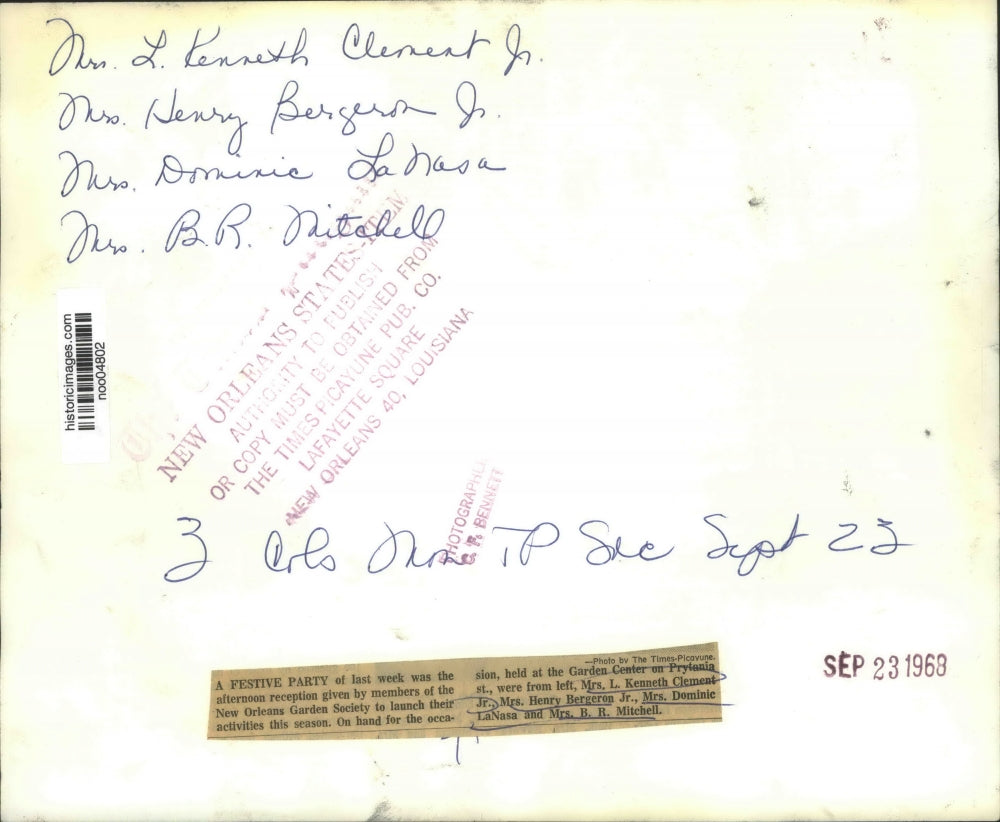 Mrs. L. Kenneth Clement Jr.
Mrs. Henry Bergeron Jr.
Mrs. Dominic LaNasa
Mrs. B.R. Mitchell
historicimages.com
noo04802
NEW ORLEANS STATES-ITEM
AUTHORITY TO PUBLISH
OR COPY MUST BE OBTAINED FROM
THE TIMES-PICAYUNE PUB. CO.
LAFAYETTE SQUARE
NEW ORLEANS 40, LOUISIANA
PHOTOGRAPHER
BENNETT
3 Cols Mon TP Soc Sept 23
SEP 23 1968
A FESTIVE PARTY of last week was the
afternoon reception given by members of the
New Orleans Garden Society to launch their
activities this season. On hand for the occa-
—Photo by The Times-Picayune.
sion, held at the Garden Center on Prytania
st., were from left, Mrs. L. Kenneth Clement
Jr., Mrs. Henry Bergeron Jr., Mrs. Dominic
LaNasa and Mrs. B. R. Mitchell.